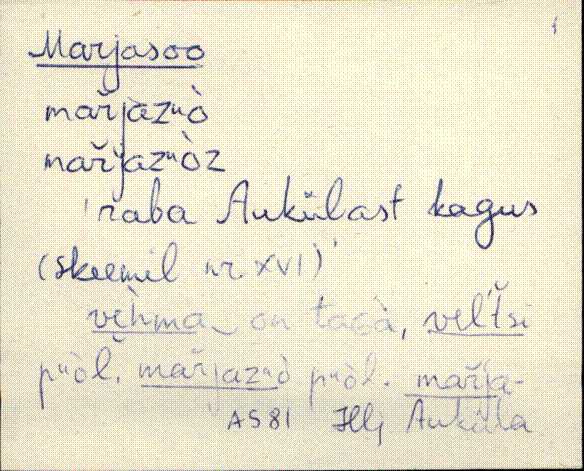 Marjasoo
mar̆jazᵘò
mar̆jazᵘòz
'raba Auküläst kagus
(skeemil nr. XVI)'
vèhma on tagà, vel'tši
pᵘòl̆. mar̆jazᵘò pᵘòl. mar̆ja-
AS81 Hlj Auküla